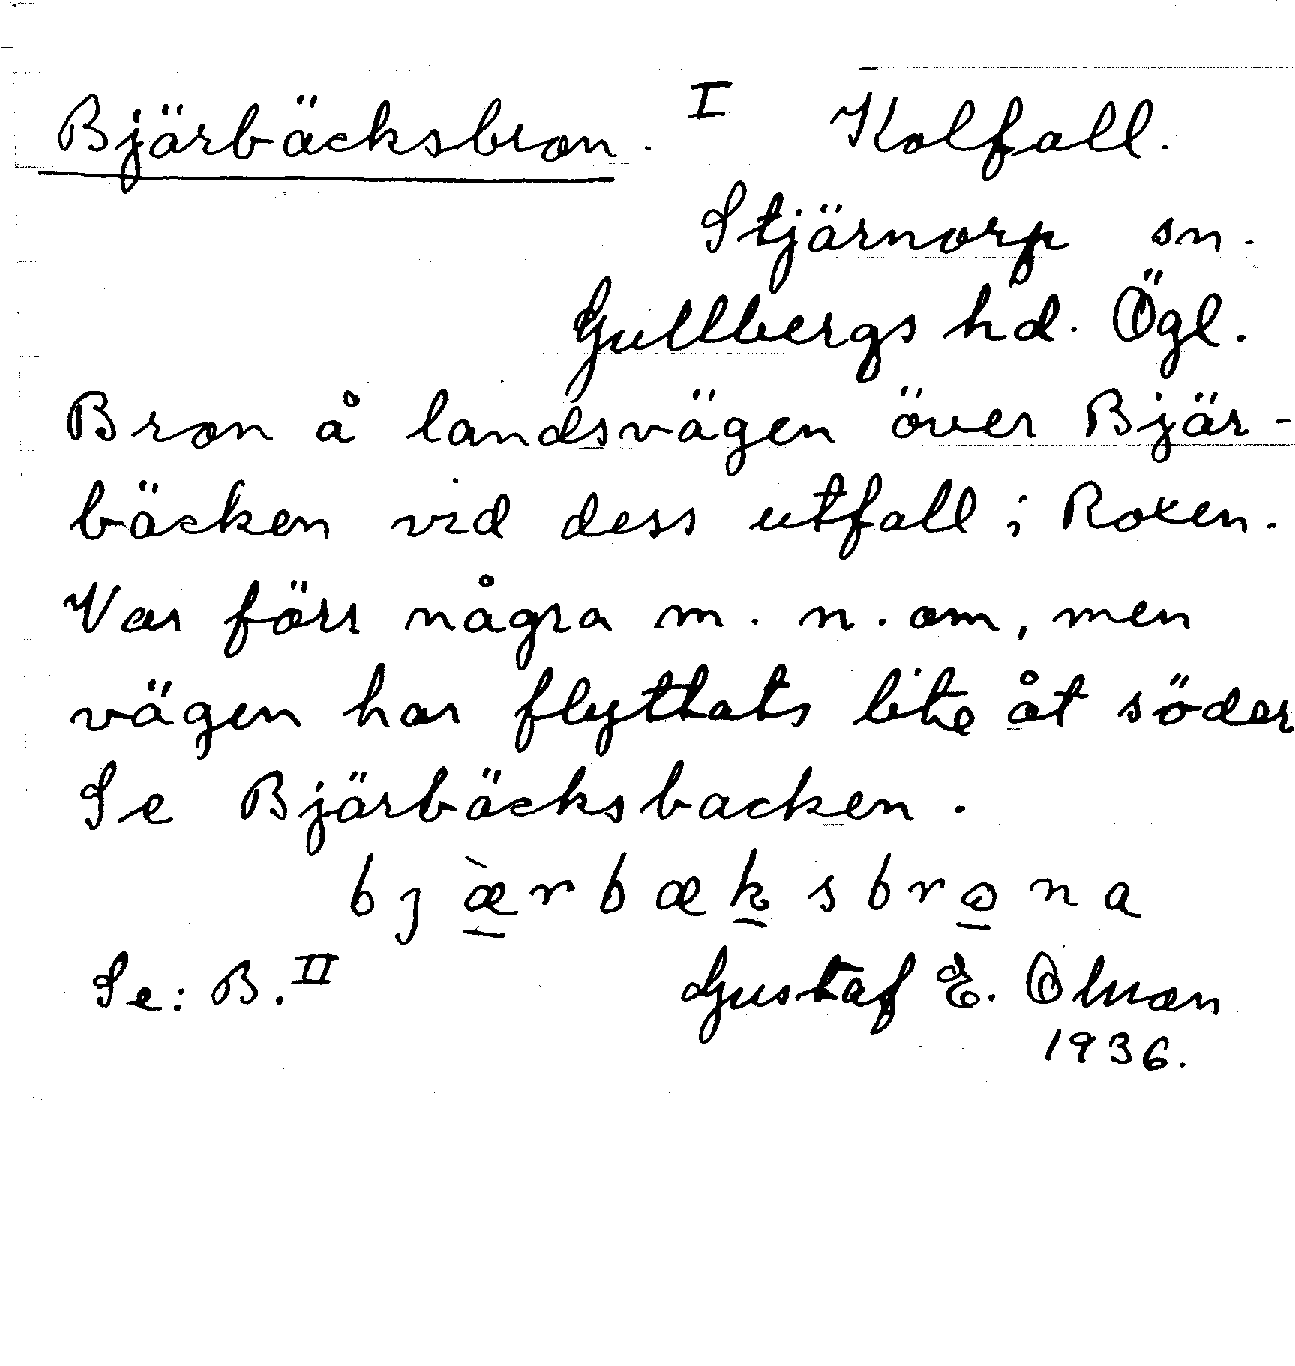 Bjärbäcksbron. I Kolfall.
Stjärnorp sn.
Gullbergs hd. Ögl.
Bron å landsvägen över Bjär-
bäcken vid dess utfall i Roxen.
Var förr några m. n. om, men
vägen har flyttats lite åt söder
Se Bjärbäcksbacken.
bjæ̀rbæksbrona
Se: B. II Gustaf E. Olsson
1936.